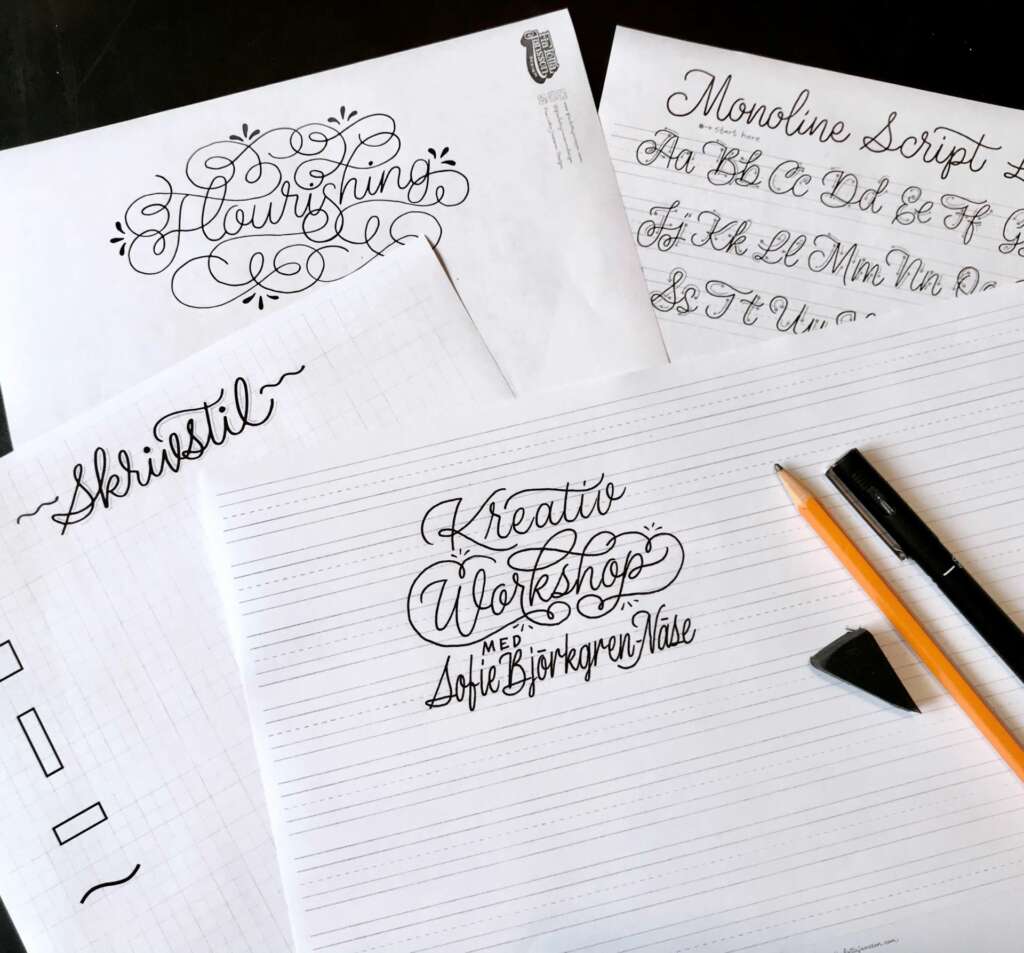 Flourishing
Monoline Script
start here
Aa Bb Cc Dd Ee Ff
Jj Kk Ll Mm Nn
Ss Tt Uu
Skrivstil
Kreativ
Workshop
MED
Sofie Björkgren-Näse